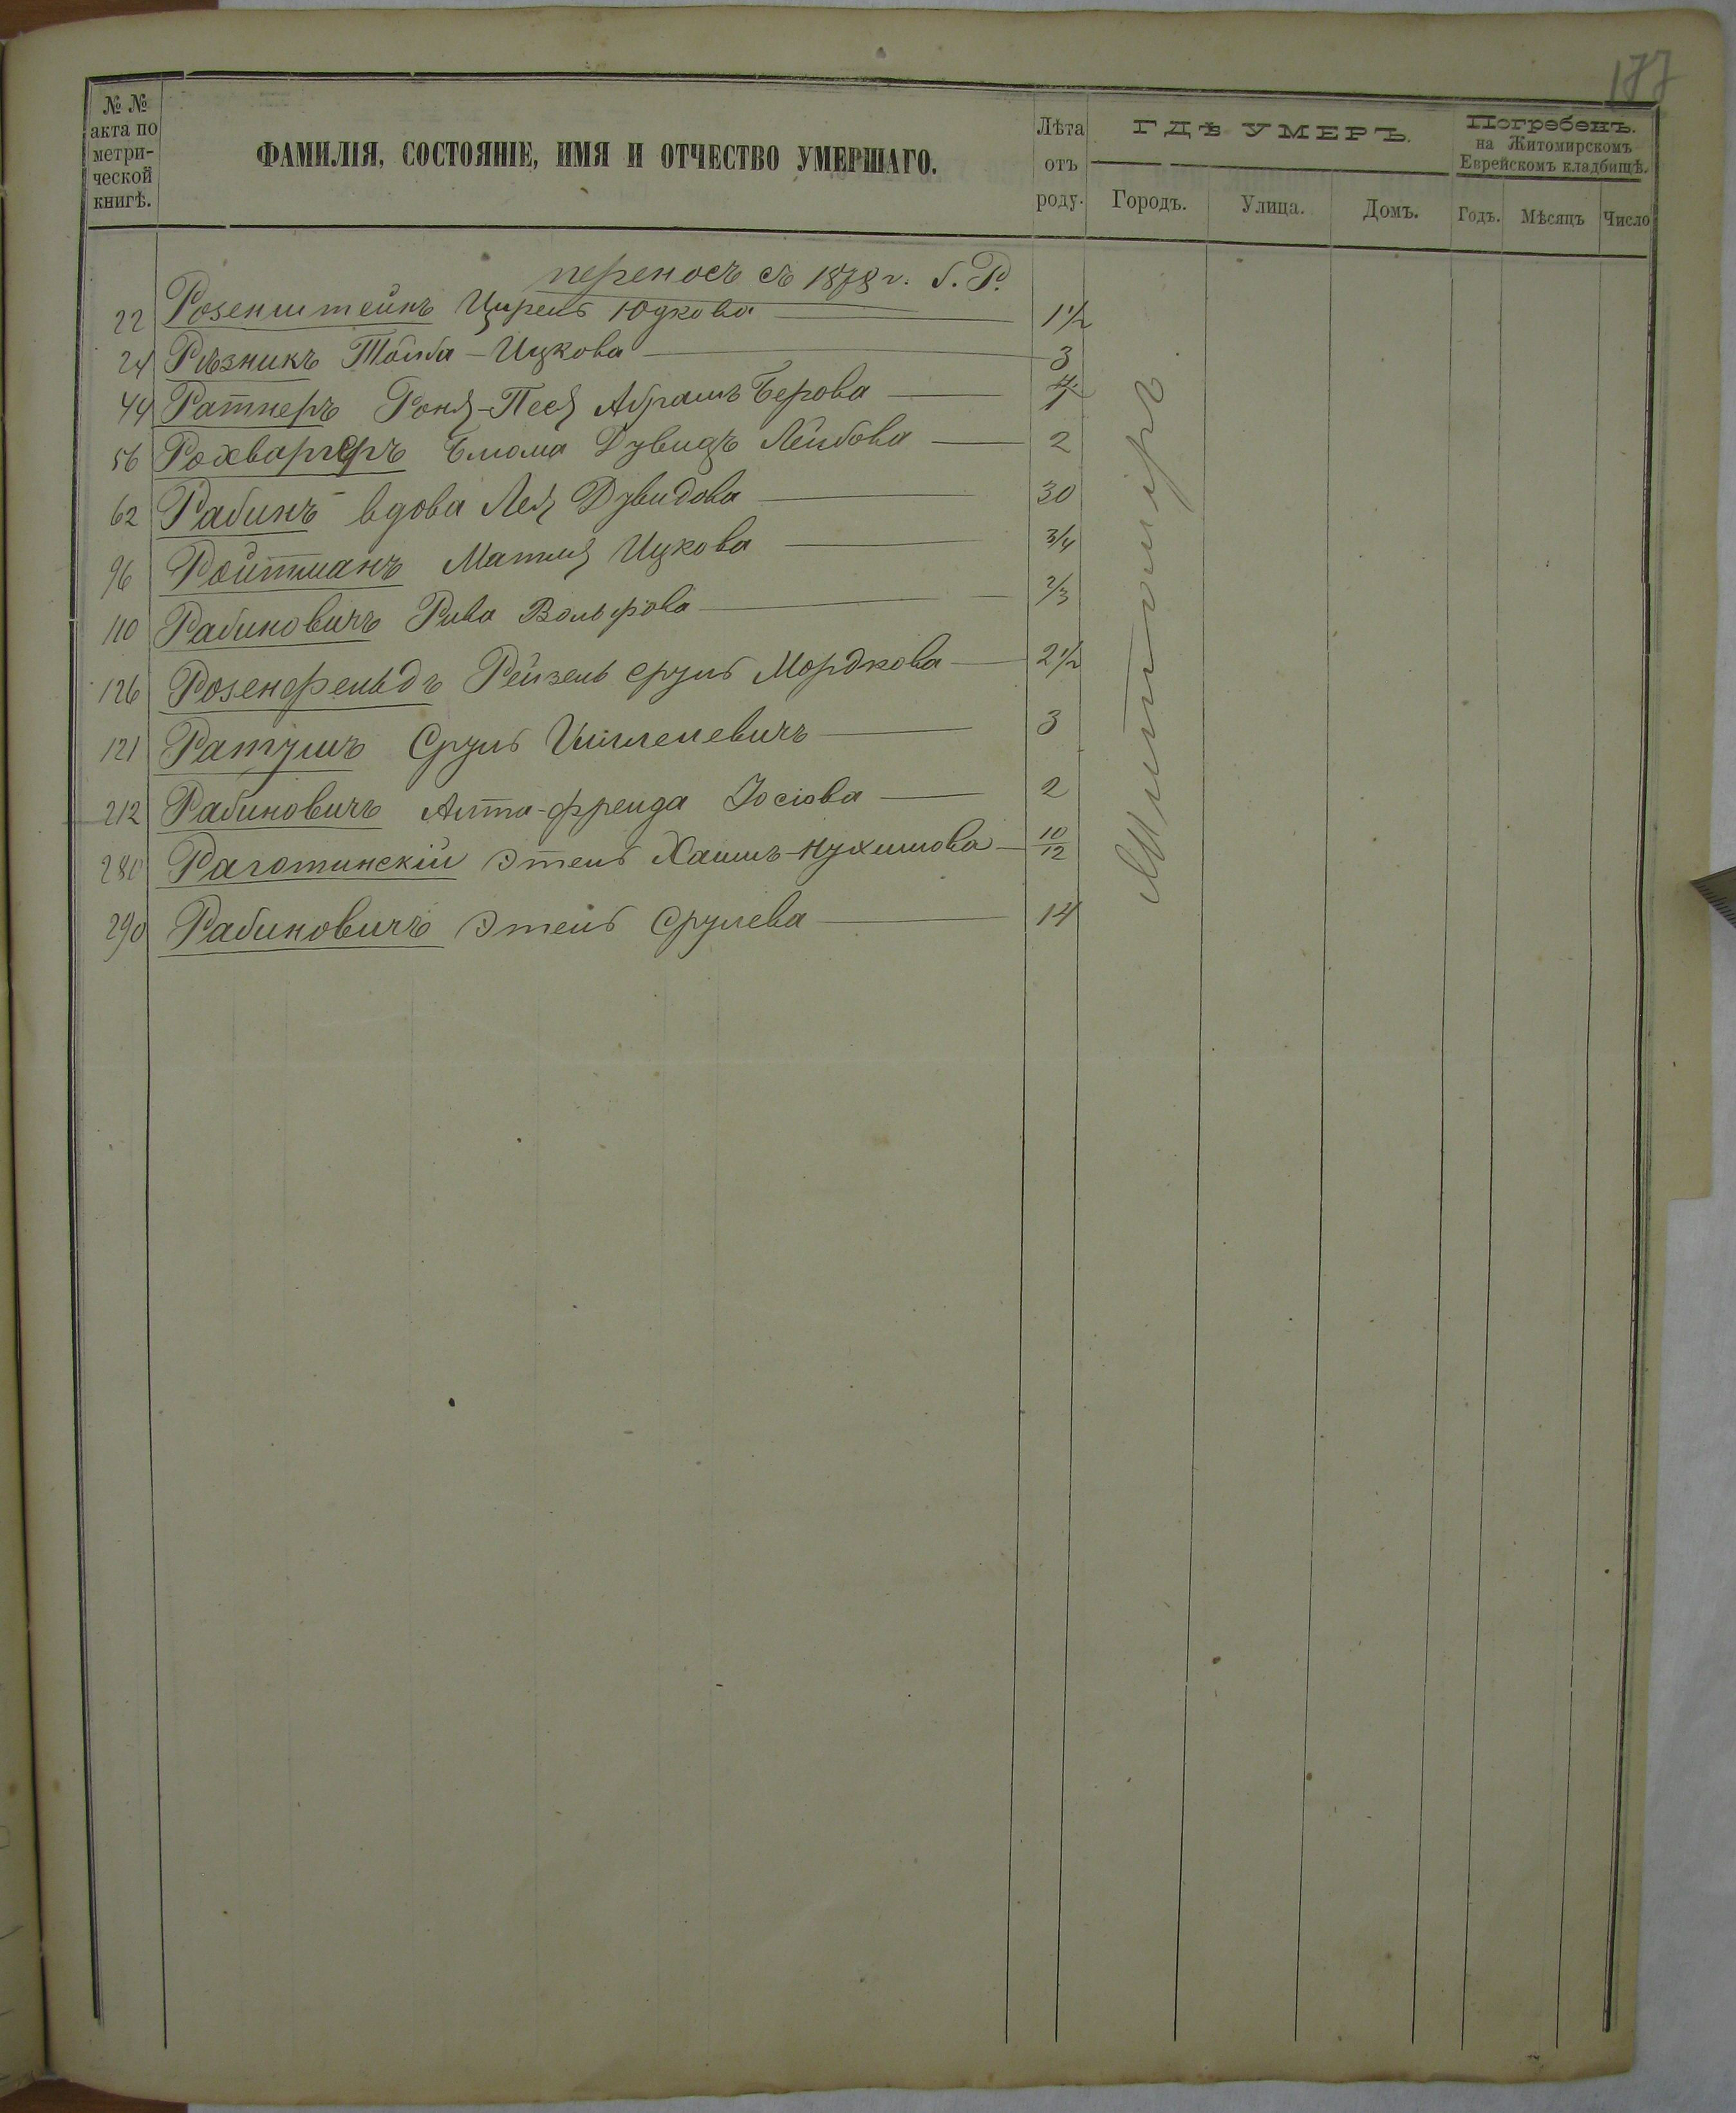 177
№ №
акта по
метри-
ческой
книгѣ.
ФАМИЛІЯ, СОСТОЯНІЕ, ИМЯ И ОТЧЕСТВО УМЕРШАГО.
Лѣта
отъ
роду.
ГДѢ УМЕРЪ.
Городъ. Улица. Домъ.
Погребенъ.
на Житомирскомъ
Еврейскомъ кладбищѣ.
Годъ. Мѣсяцъ Число
переносъ съ 1878 г. б. Р.
22 Розенштейнъ Цирель Юдкова 1 1/2
24 Рѣзникъ Тойба-Ицкова 3
44 Ратнеръ Роня-Песя Абрамъ Берова
56 Рохваргеръ Блюма Дувидъ Лейбова 2
62 Рабинъ вдова Лея Дувидова 30
96 Ройтманъ Матля Ицкова 3/4
110 Рабиновичъ Рива Вольфова 2/3
126 Розенфельдъ Рейзель Сруль Мордкова 2 1/2
121 Ратушъ Сруль 3
212 Рабиновичъ Алта-Фрейда Іосіова 2
280 Раготинскій Этель Хаимъ-Нухимова 10/12
290 Рабиновичъ Этель Срулева 14
Житомиръ